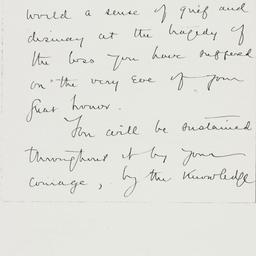 world a sense of grief and
dismay at the tragedy of
the loss you have suffered
on the very Eve of your
great honor.
You will be sustained
throughout it by your
courage, by the knowledge